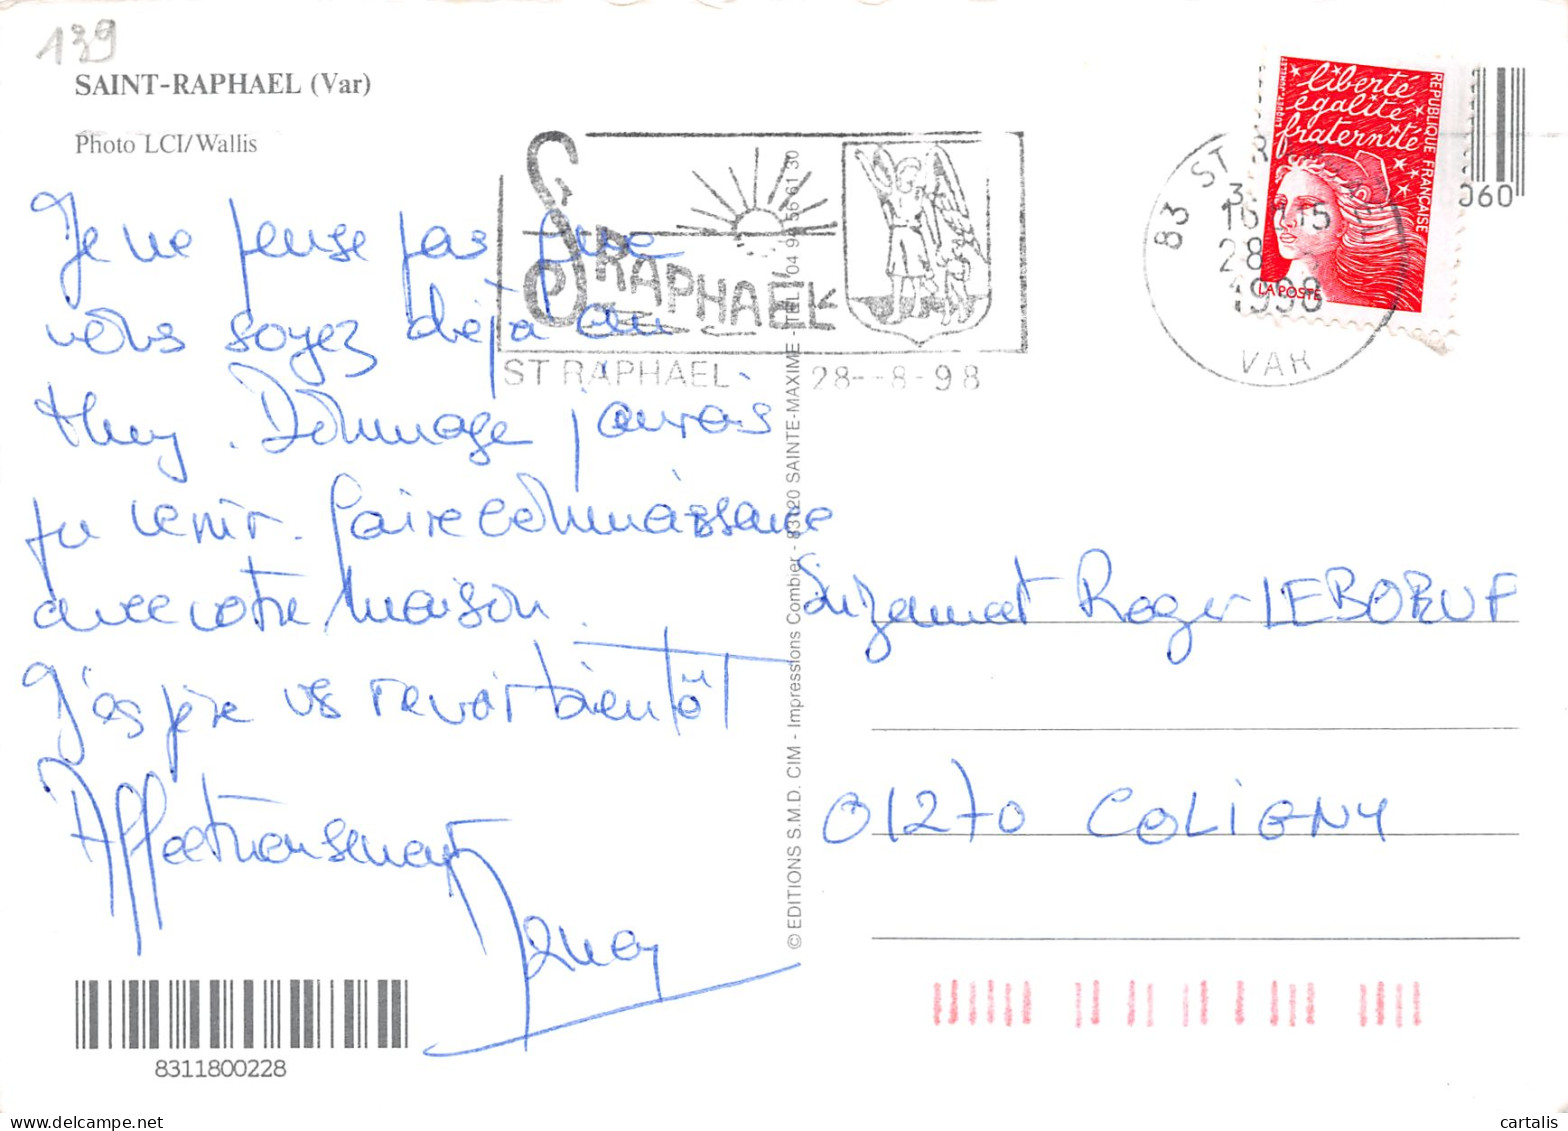 139
SAINT-RAPHAEL (Var)
Photo LCI/Wallis
Je ne pense pas que
vous soyez déjà au
thuy. Dommage j'aurais
pu venir faire connaissance
avec votre maison.
J'espère vs revoir bientôt
Affectueusement
8311800228
St RAPHAËL
ST RAPHAEL 28--8-98
© EDITIONS S.M.D. CIM - Impressions Combier - 83120 SAINTE-MAXIME - TEL. 04 94 56 61 30
83 ST
28
1998
VAR
liberté
égalité
fraternité
REPUBLIQUE FRANÇAISE
LA POSTE
060
Suzanne et Roger LEBOEUF
01270 COLIGNY
cartalis